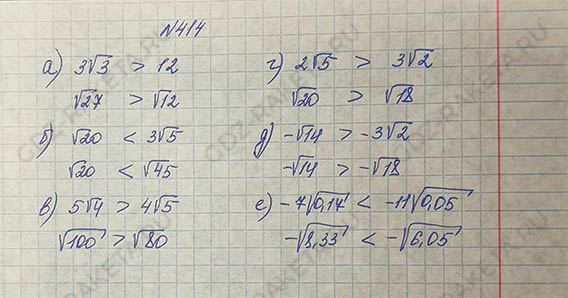 №414
а) 3√3 > 12
√27 > √12
б) √20 < 3√5
√20 < √45
в) 5√4 > 4√5
√100 > √80
г) 2√5 > 3√2
√20 > √18
д) -√14 > -3√2
-√14 > -√18
е) -7√0,17 < -11√0,05
-√8,33 < -√6,05
GDZ-RAKETA.RU